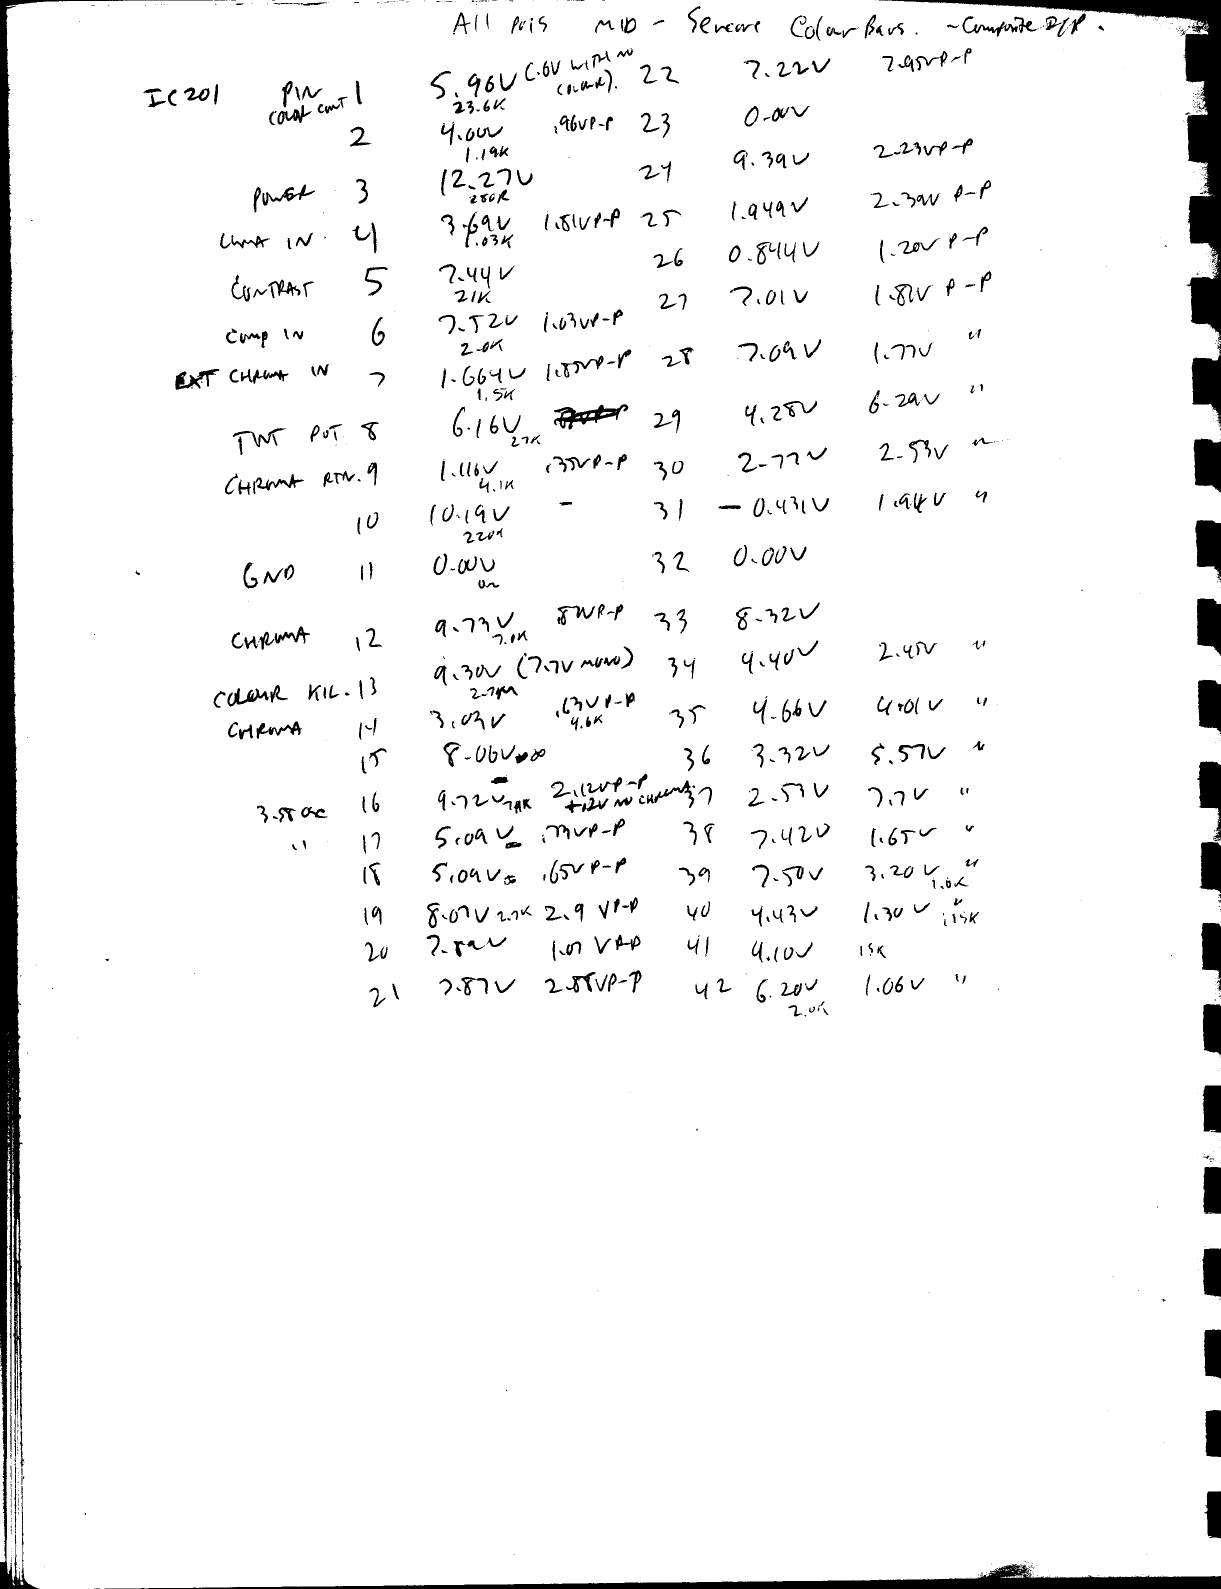 All pots MID - Sencore Colour Bars. ~Composite I/P.
IC201 PIN 1 5.96V (.6V WITH NO COLOUR). 22 7.22V 7.95VP-P
COLOUR CONT 23.6K
2 4.00V .96VP-P 23 0.00V
1.19K
POWER 3 12.27V 24 9.39V 2.23VP-P
280R
LUMA IN 4 3.69V 1.81VP-P 25 1.949V 2.39V P-P
1.03K
CONTRAST 5 7.44V 26 0.844V 1.20V P-P
21K
COMP IN 6 7.52V 1.03VP-P 27 7.01V 1.81V P-P
2.0K
EXT CHROMA IN 7 1.664V 1.85VP-P 28 7.09V 1.77V "
1.5K
TINT POT 8 6.16V 29 4.28V 6.29V "
27K
CHROMA RTN. 9 1.116V .35VP-P 30 2.77V 2.53V "
4.1K
10 10.19V - 31 -0.431V 1.94V "
220R
GND 11 0.00V 32 0.00V
CHROMA 12 9.73V 33 8.32V
7.0K
COLOUR KIL. 13 9.30V (7.7V MONO) 34 4.40V 2.45V "
CHROMA 14 3.03V .63VP-P 35 4.66V 4.01V "
4.6K
15 8.06V ∞ 36 3.32V 5.57V "
3.58 osc 16 9.72V 2.12VP-P 37 2.53V 7.7V "
NO CHROMA
" 17 5.09V .73VP-P 38 7.42V 1.65V "
18 5.09V ∞ .65VP-P 39 7.50V 3.20V "
1.6K
19 8.07V 2.7K 2.9 VP-P 40 4.43V 1.30V "
20 7.89V 1.07 VP-P 41 4.10V 15K
21 7.87V 2.88VP-P 42 6.20V 1.06V "
2.0K